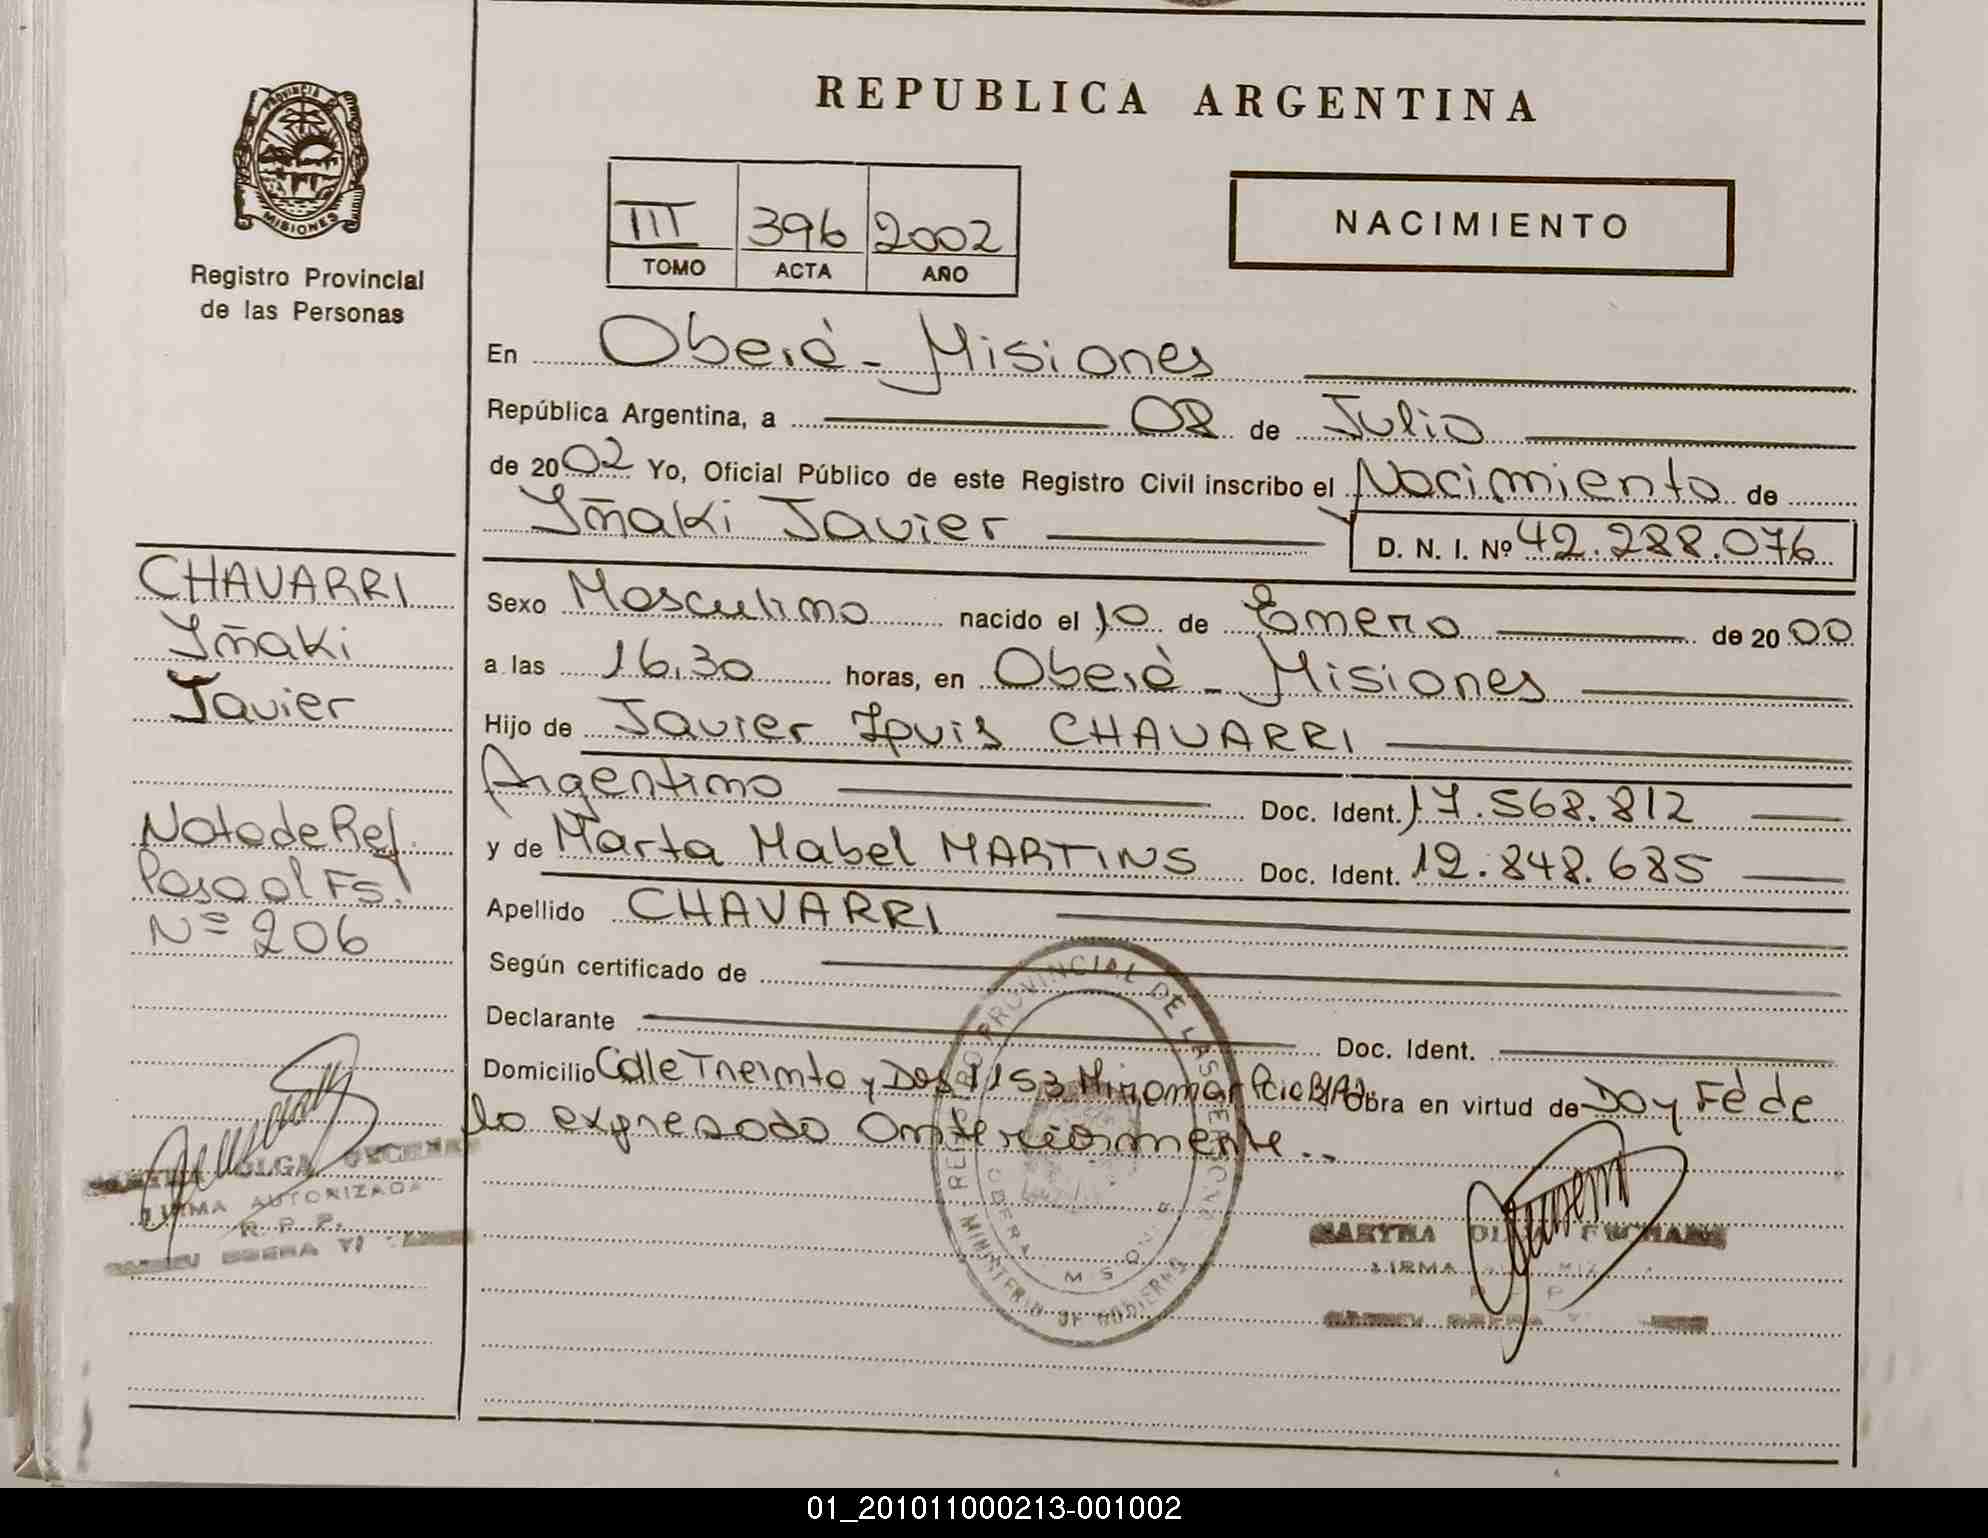 PROVINCIA DE
MISIONES
Registro Provincial
de las Personas
REPUBLICA ARGENTINA
III 396 2002
TOMO ACTA AÑO
NACIMIENTO
En Oberá - Misiones
República Argentina, a 08 de Julio
de 2002 Yo, Oficial Público de este Registro Civil inscribo el Nacimiento de
Iñaki Javier
D. N. I. Nº 42.288.076
Sexo Masculino nacido el 10 de Enero de 2000
a las 16.30 horas, en Oberá - Misiones
Hijo de Javier Luis CHAVARRI
Argentino Doc. Ident. 17.568.812
y de Marta Mabel MARTINS Doc. Ident. 12.848.685
Apellido CHAVARRI
Según certificado de
Declarante Doc. Ident.
Domicilio Calle Treinta y Dos 1153 Miramar Pcia B/A Obra en virtud de Doy Fé de
lo expresado anteriormente..
CHAVARRI
Iñaki
Javier
Nota de Ref.
Pasa al Fs.
Nº 206
OLGA
FIRMA AUTORIZADA
R. P. P.
REGISTRO PROVINCIAL DE LAS PERSONAS
MINISTERIO DE GOBIERNO
OBERA MISIONES
FIRMA
01_201011000213-001002